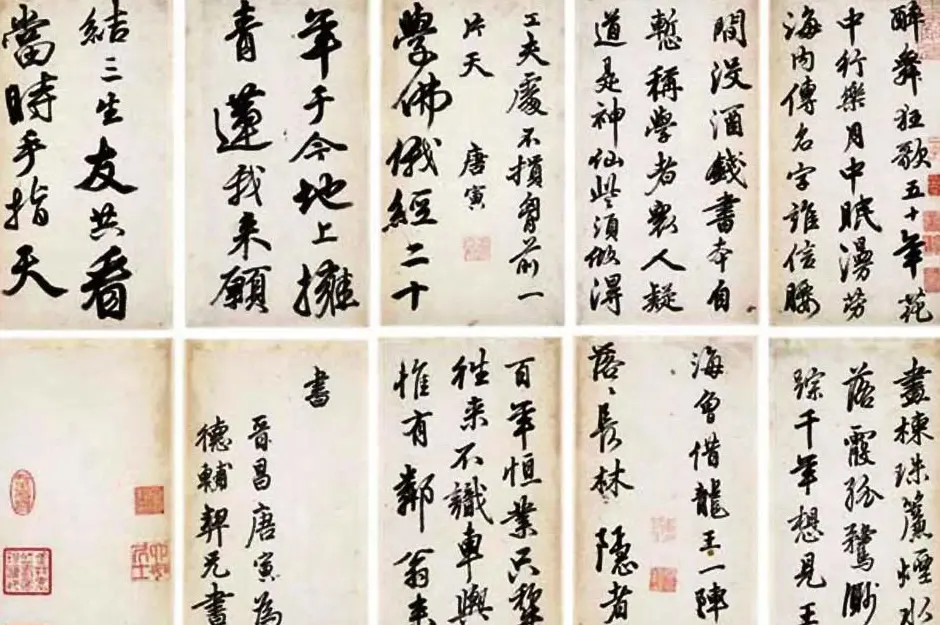 醉舞狂歌五十年花
中行樂月中眠漫勞
海內傳名字誰信腰
間沒酒錢書本自
慙稱學者眾人疑
道是神仙些須做得
工夫處不損胷前一
片天 唐寅
學佛俄經二十
年于今地上擁
青蓮我來願
結三生友共看
當時手指天
畫棟珠簾煙水
落霞孤鶩渺
踪千年想見王
海曾借龍王一陣
落〻長林隱者
百年恒業只犂
徃來不識車輿
惟有鄰翁來
書
晉昌唐寅為
德輔契兄書